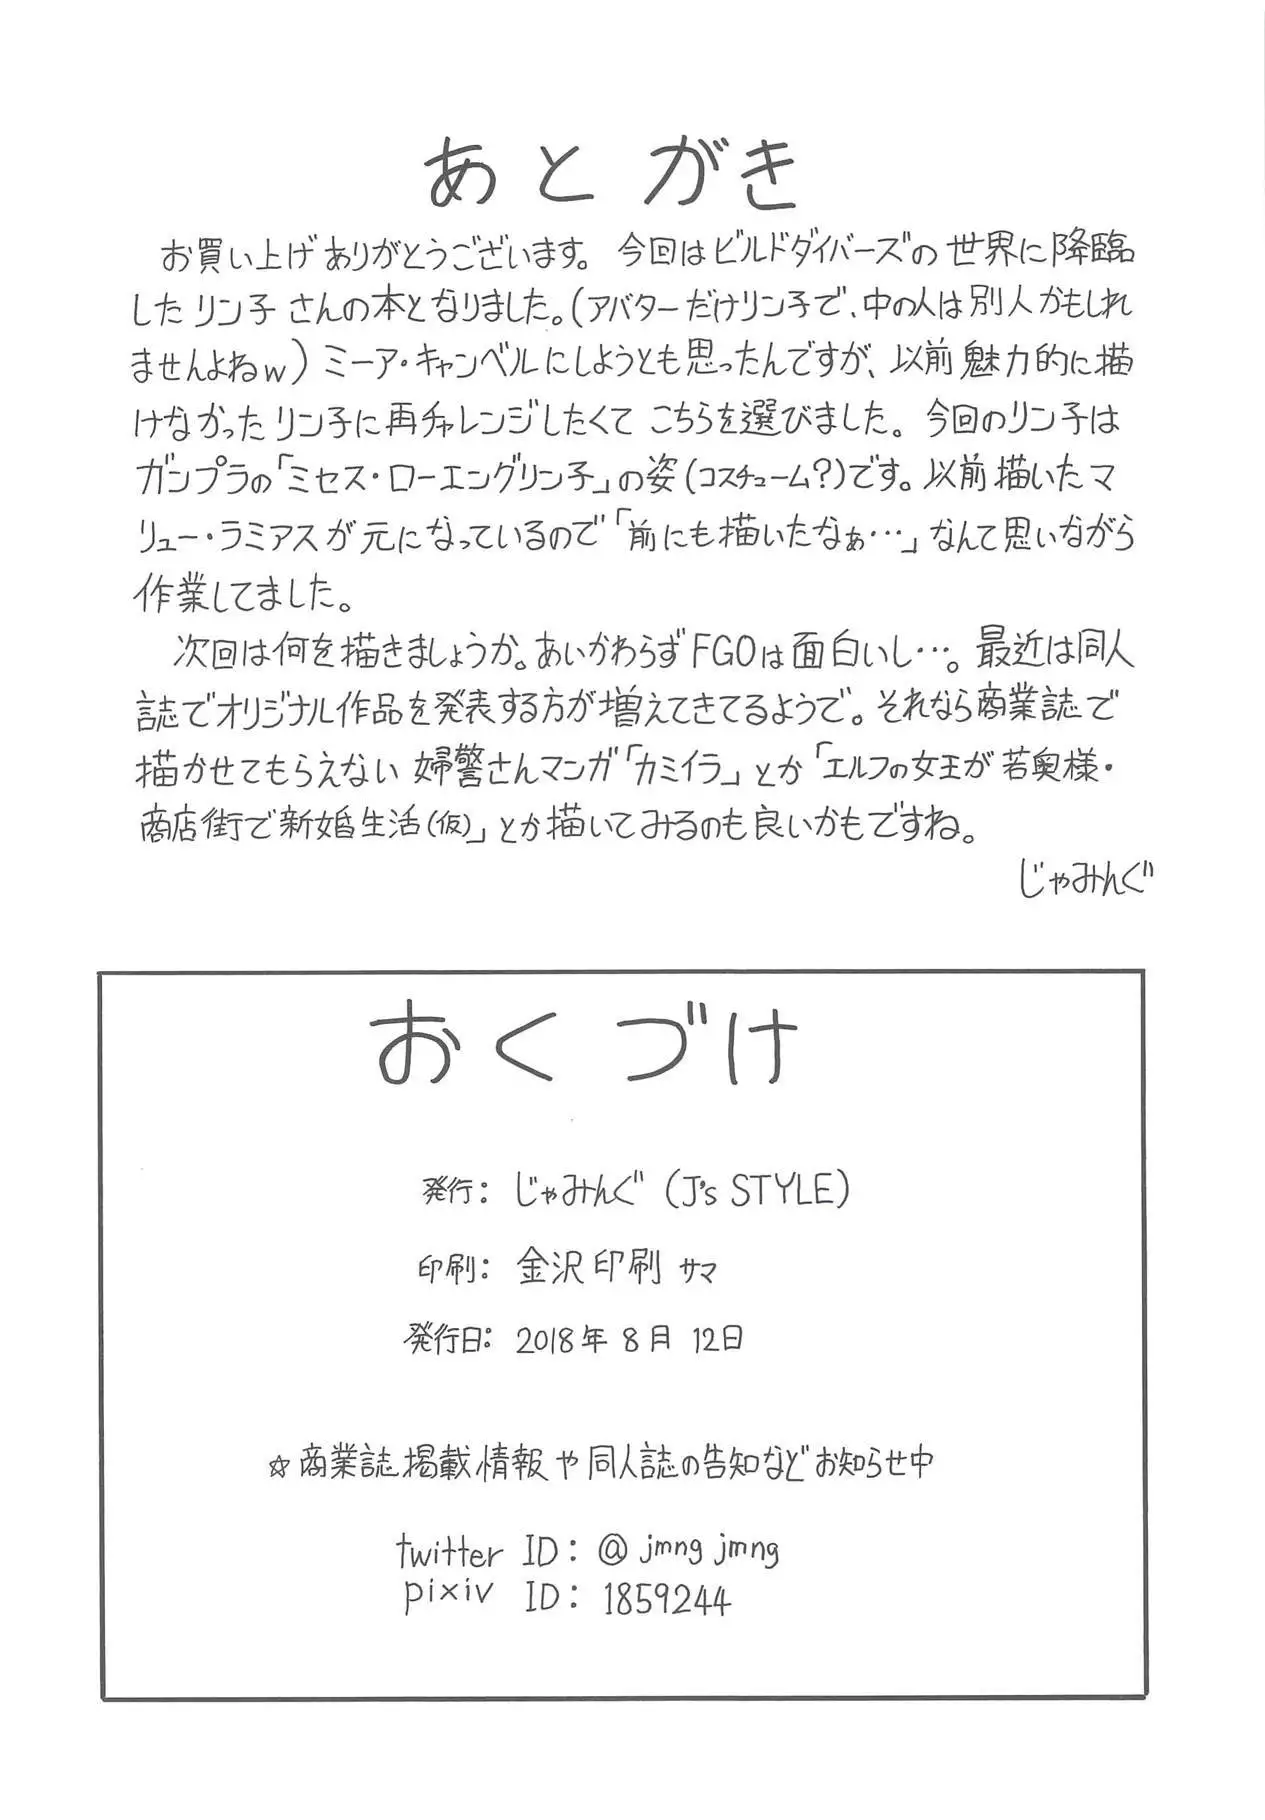 あとがき
お買い上げありがとうございます。今回はビルドダイバーズの世界に降臨
したリン子さんの本となりました。(アバターだけリン子で、中の人は別人かもしれ
ませんよねw)ミーア・キャンベルにしようとも思ったんですが、以前魅力的に描
けなかったリン子に再チャレンジしたくてこちらを選びました。今回のリン子は
ガンプラの「ミセス・ローエングリン子」の姿(コスチューム?)です。以前描いたマ
リュー・ラミアスが元になっているので「前にも描いたなぁ…」なんて思いながら
作業してました。
次回は何を描きましょうか。あいかわらずFGOは面白いし…。最近は同人
誌でオリジナル作品を発表する方が増えてきてるようで。それなら商業誌で
描かせてもらえない婦警さんマンガ「カミイラ」とか「エルフの女王が若奥様・
商店街で新婚生活(仮)」とか描いてみるのも良いかもですね。
じゃみんぐ
おくづけ
発行: じゃみんぐ (J's STYLE)
印刷: 金沢印刷サマ
発行日: 2018年8月12日
☆商業誌掲載情報や同人誌の告知などお知らせ中
twitter ID: @jmngjmng
pixiv ID: 1859244